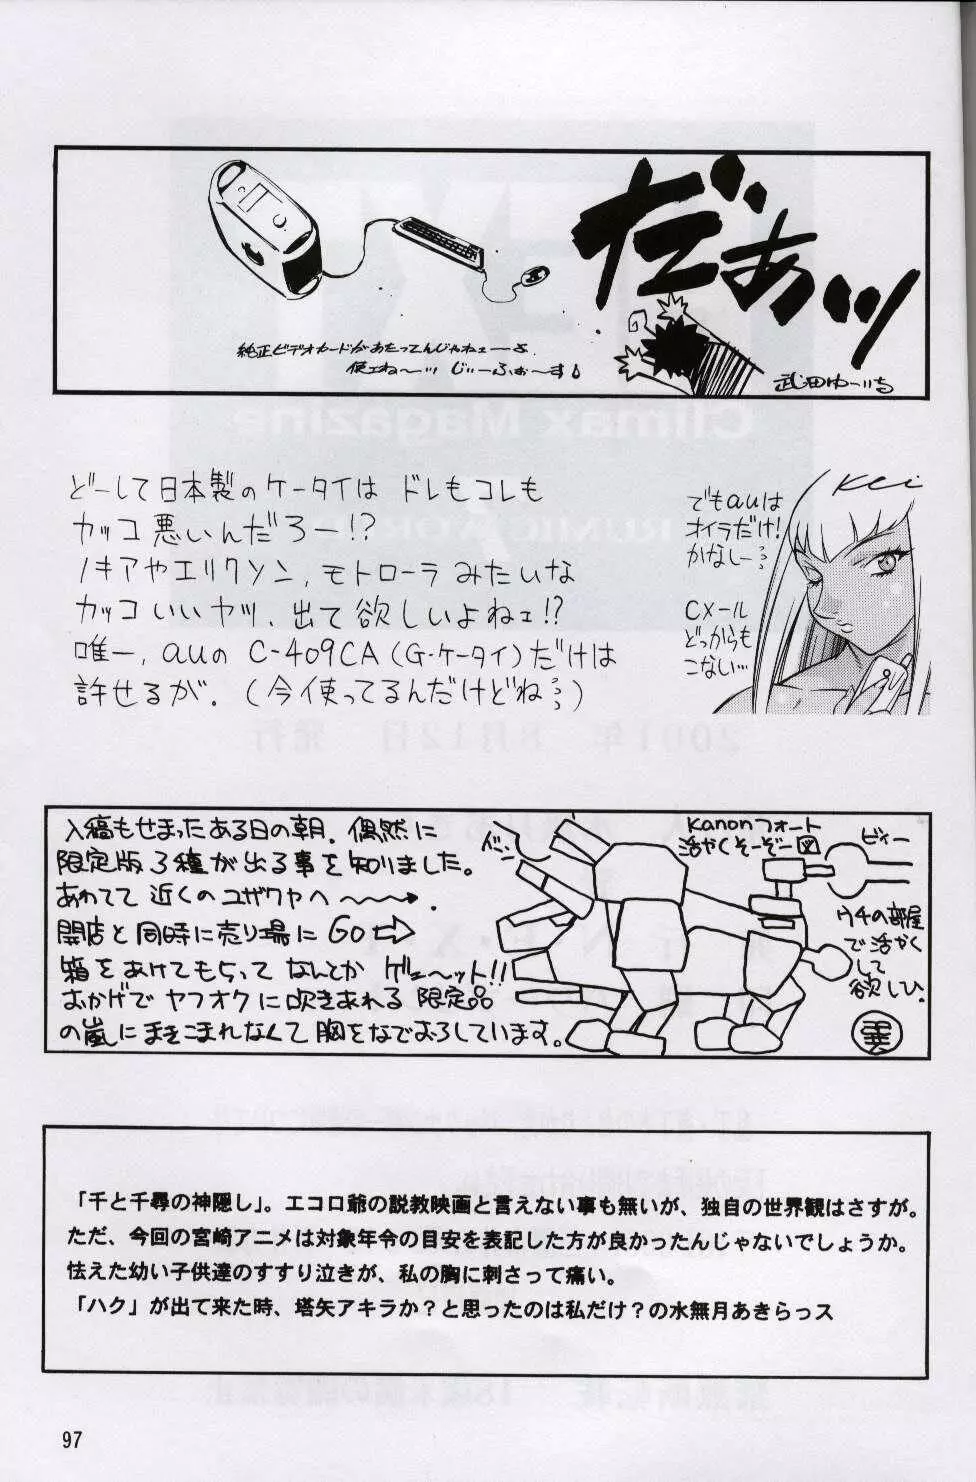 だあッ
純正ビデオカードがあたってんじゃねェーよ
使エね〜ッ じぃーふぉ〜す
武田ゆーいち
どーして日本製のケータイは ドレもコレも
カッコ悪いんだろー!?
ノキアやエリクソン, モトローラ みたいな
カッコいいヤツ、出て欲しいよねェ!?
唯一, auの C-409CA (G・ケータイ) だけは
許せるが. (今使ってるんだけどね…)
Kei
でもauは
オイラだけ!
かなしー…
Cメール
どっからも
こない…
入稿もせまったある日の朝. 偶然に
限定版3種が出る事を知りました。
あわてて 近くのユザワヤへ
開店と同時に売り場にGO
箱をあけてもらって なんとか ゲェ〜ット!!
おかげで ヤフオクに吹きあれる 限定品
の嵐にまきこまれなくて胸をなでおろしています。
Kanonフォート
活やくそーぞー図
ビィー
ウチの部屋
で活やく
して
欲しひ。
「千と千尋の神隠し」。エコロ爺の説教映画と言えない事も無いが、独自の世界観はさすが。
ただ、今回の宮崎アニメは対象年令の目安を表記した方が良かったんじゃないでしょうか。
怯えた幼い子供達のすすり泣きが、私の胸に刺さって痛い。
「ハク」が出て来た時、塔矢アキラか？と思ったのは私だけ？の水無月あきらっス
97